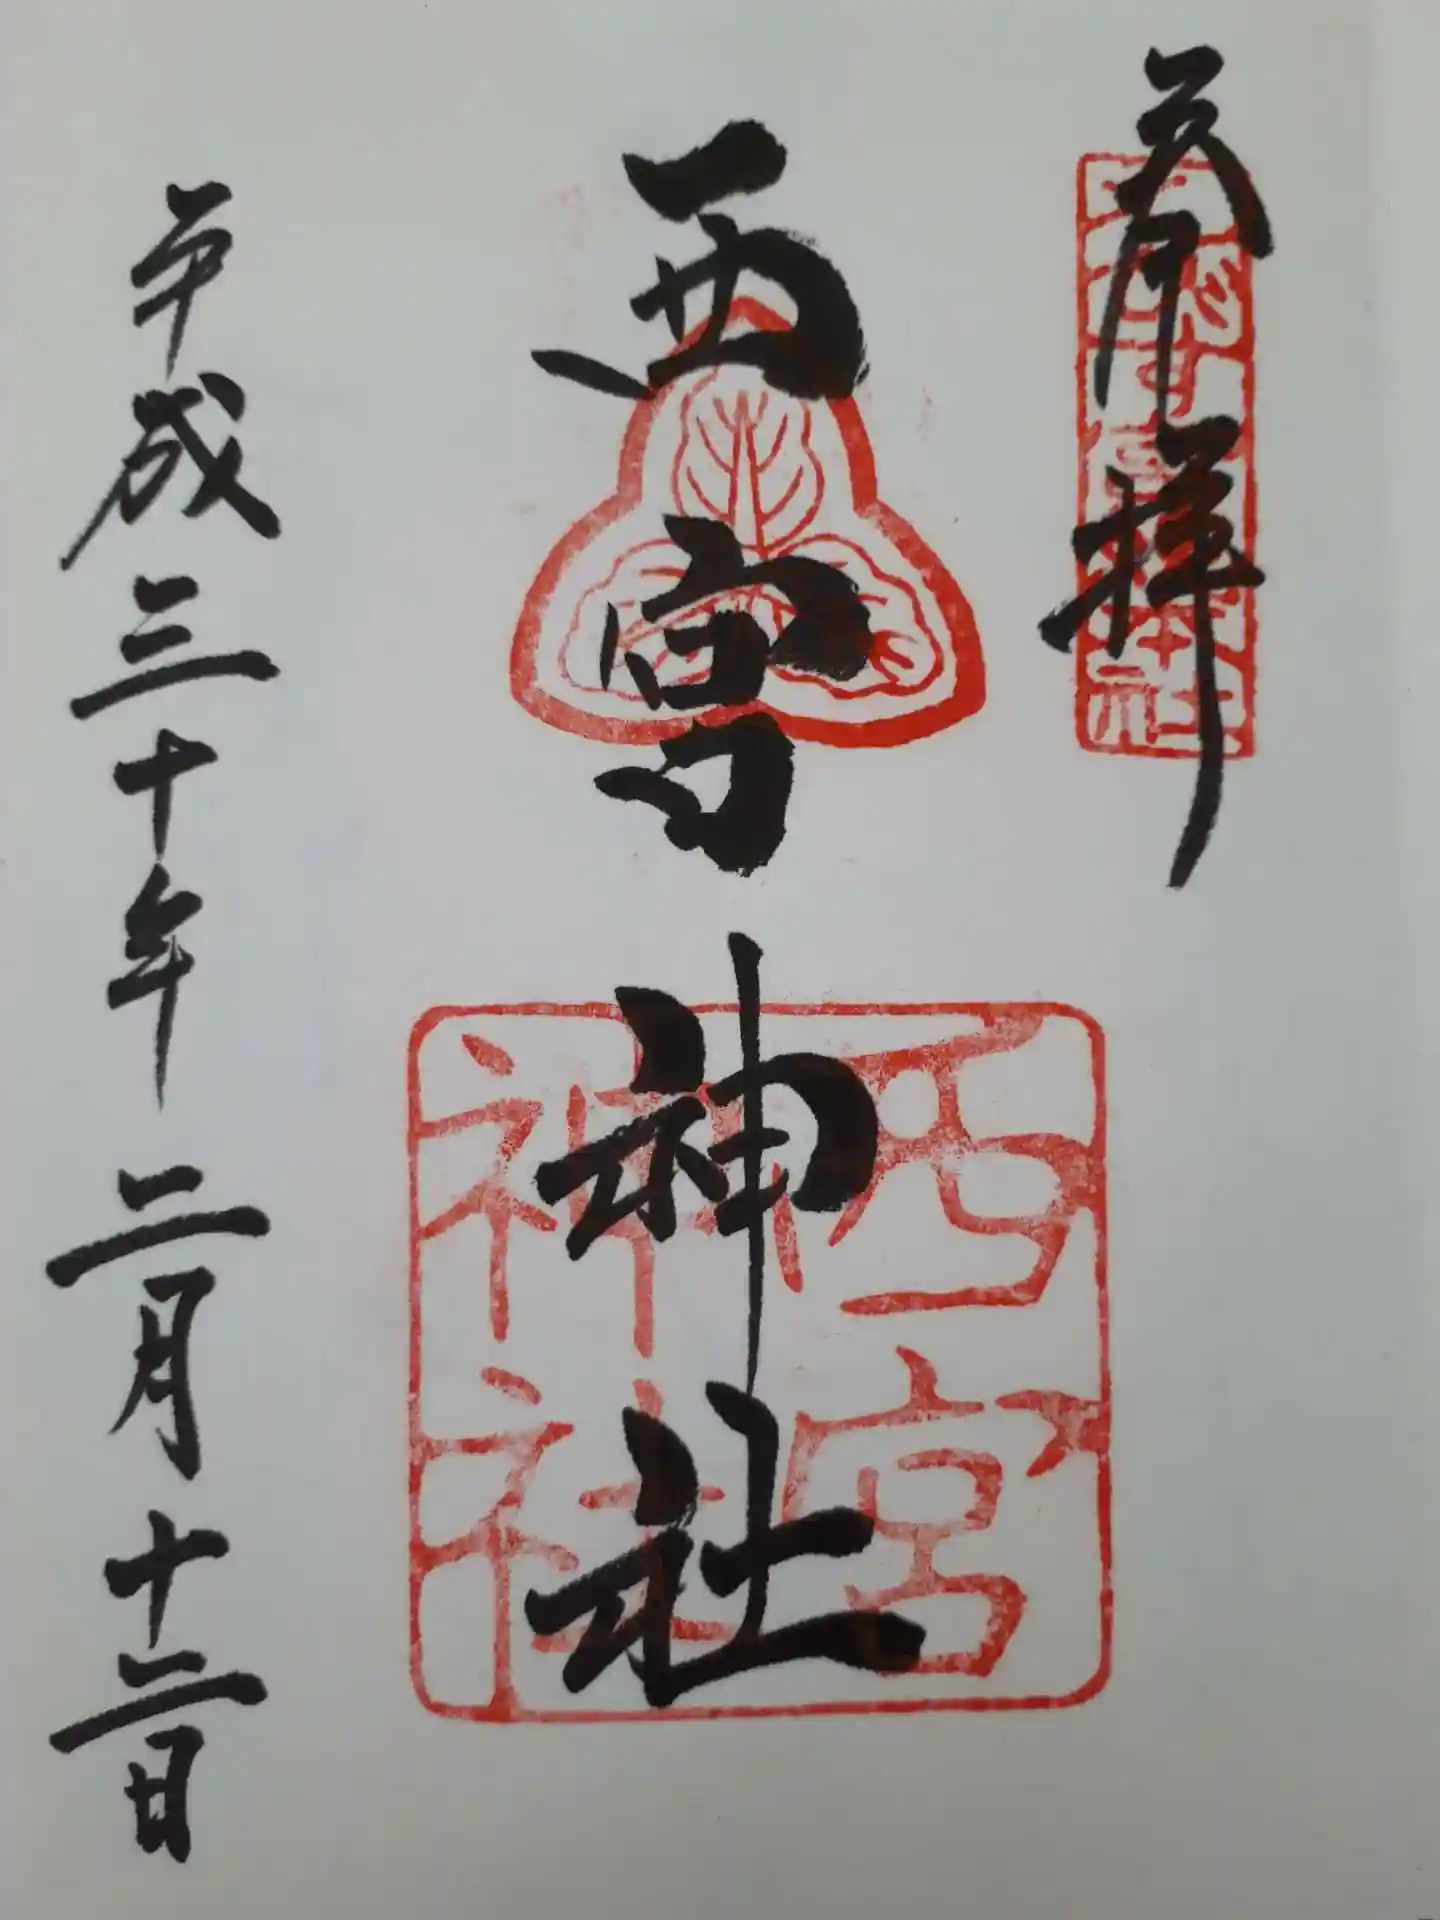 奉拝
西宮神社
西宮神社
平成三十年二月十二日